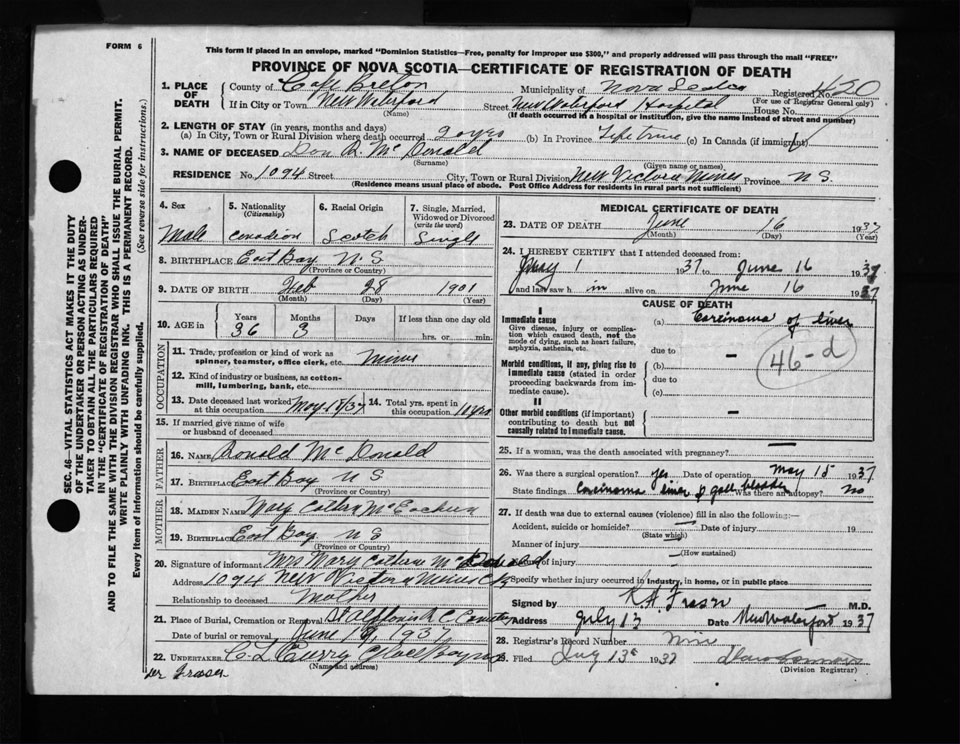 FORM 6
This form if placed in an envelope, marked "Dominion Statistics—Free, penalty for improper use $300," and properly addressed will pass through the mail "FREE"
PROVINCE OF NOVA SCOTIA—CERTIFICATE OF REGISTRATION OF DEATH
1. PLACE OF DEATH
County of Cape Breton Municipality of Nova Scotia Registered No.
(For use of Registrar General only)
If in City or Town New Waterford Street New Waterford Hospital House No.
(Name) (If death occurred in a hospital or institution, give the name instead of street and number)
2. LENGTH OF STAY (in years, months and days)
(a) In City, Town or Rural Division where death occurred 20 yrs (b) In Province Life time (c) In Canada (if immigrant)
3. NAME OF DECEASED Don R. Mc Donald
(Surname) (Given name or names)
RESIDENCE No. 1094 Street City, Town or Rural Division New Victoria Mines Province N S.
(Residence means usual place of abode. Post Office Address for residents in rural parts not sufficient)
4. Sex Male
5. Nationality (Citizenship) Canadian
6. Racial Origin Scotch
7. Single, Married, Widowed or Divorced (write the word) Single
8. BIRTHPLACE East Bay N. S
(Province or Country)
9. DATE OF BIRTH Feb 28 1901
(Month) (Day) (Year)
10. AGE in Years 36 Months 3 Days If less than one day old hrs. or min.
OCCUPATION
11. Trade, profession or kind of work as spinner, teamster, office clerk, etc. Miner
12. Kind of industry or business, as cotton-mill, lumbering, bank, etc.
13. Date deceased last worked at this occupation May 15/37 14. Total yrs. spent in this occupation 10 yrs
15. If married give name of wife or husband of deceased
FATHER
16. NAME Donald Mc Donald
17. BIRTHPLACE East Bay N S
(Province or Country)
MOTHER
18. MAIDEN NAME Mary Cathern McEachern
19. BIRTHPLACE East Bay N S
(Province or Country)
20. Signature of informant Mrs Mary Cathern Mc Donald
Address 1094 New Victoria Mines C B
Relationship to deceased Mother
21. Place of Burial, Cremation or Removal
Date of burial or removal June 19, 1937
22. UNDERTAKER C. L. Curry Glace Bay
(Name and address)
per Fraser
MEDICAL CERTIFICATE OF DEATH
23. DATE OF DEATH June 16 1937
(Month) (Day) (Year)
24. I HEREBY CERTIFY that I attended deceased from:
May 1 1937 to June 16 1937
and last saw him alive on June 16 1937
CAUSE OF DEATH
I
Immediate cause (a) Carcinoma of liver
Give disease, injury or complication which caused death, not the mode of dying, such as heart failure, asphyxia, asthenia, etc.
due to —
46-d
Morbid conditions, if any, giving rise to immediate cause (stated in order proceeding backwards from immediate cause).
(b)
due to
(c)
II
Other morbid conditions (if important) contributing to death but not causally related to immediate cause. —
25. If a woman, was the death associated with pregnancy? —
26. Was there a surgical operation? yes Date of operation May 15 1937
State findings Carcinoma liver & gall bladder Was there an autopsy? no
27. If death was due to external causes (violence) fill in also the following:—
Accident, suicide or homicide? — Date of injury 19
(State which)
Manner of injury —
(How sustained)
Nature of injury —
Specify whether injury occurred in industry, in home, or in public place
Signed by K. A. Fraser M.D.
Address July 13 Date New Waterford 1937
28. Registrar's Record Number Nine
29. Filed July 13th 1937
(Division Registrar)
SEC. 46—VITAL STATISTICS ACT MAKES IT THE DUTY OF THE UNDERTAKER OR PERSON ACTING AS UNDERTAKER TO OBTAIN ALL THE PARTICULARS REQUIRED IN THE "CERTIFICATE OF REGISTRATION OF DEATH" AND TO FILE THE SAME WITH THE DIVISION REGISTRAR WHO SHALL ISSUE THE BURIAL PERMIT.
WRITE PLAINLY WITH UNFADING INK. THIS IS A PERMANENT RECORD.
Every item of information should be carefully supplied. (See reverse side for instructions.)